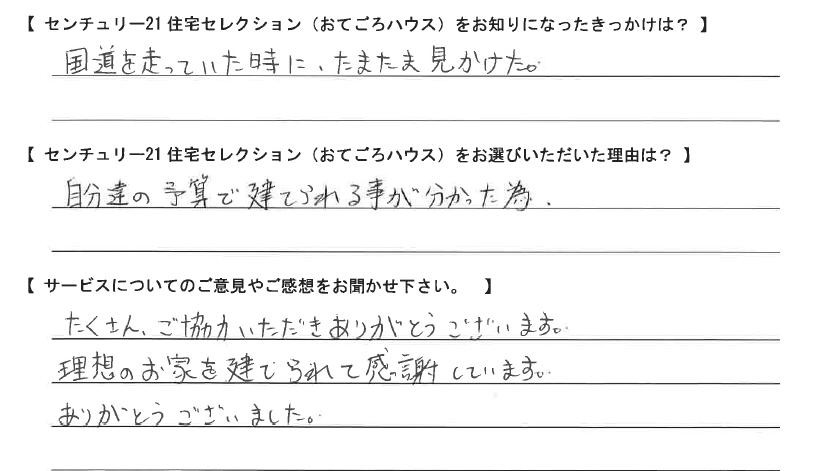 【 センチュリー21 住宅セレクション（おてごろハウス）をお知りになったきっかけは？ 】
国道を走っていた時に、たまたま見かけた。
【 センチュリー21 住宅セレクション（おてごろハウス）をお選びいただいた理由は？ 】
自分達の予算で建てられる事が分かった為．
【 サービスについてのご意見やご感想をお聞かせ下さい。 】
たくさん、ご協力いただきありがとうございます。
理想のお家を建てられて感謝しています。
ありがとうございました。